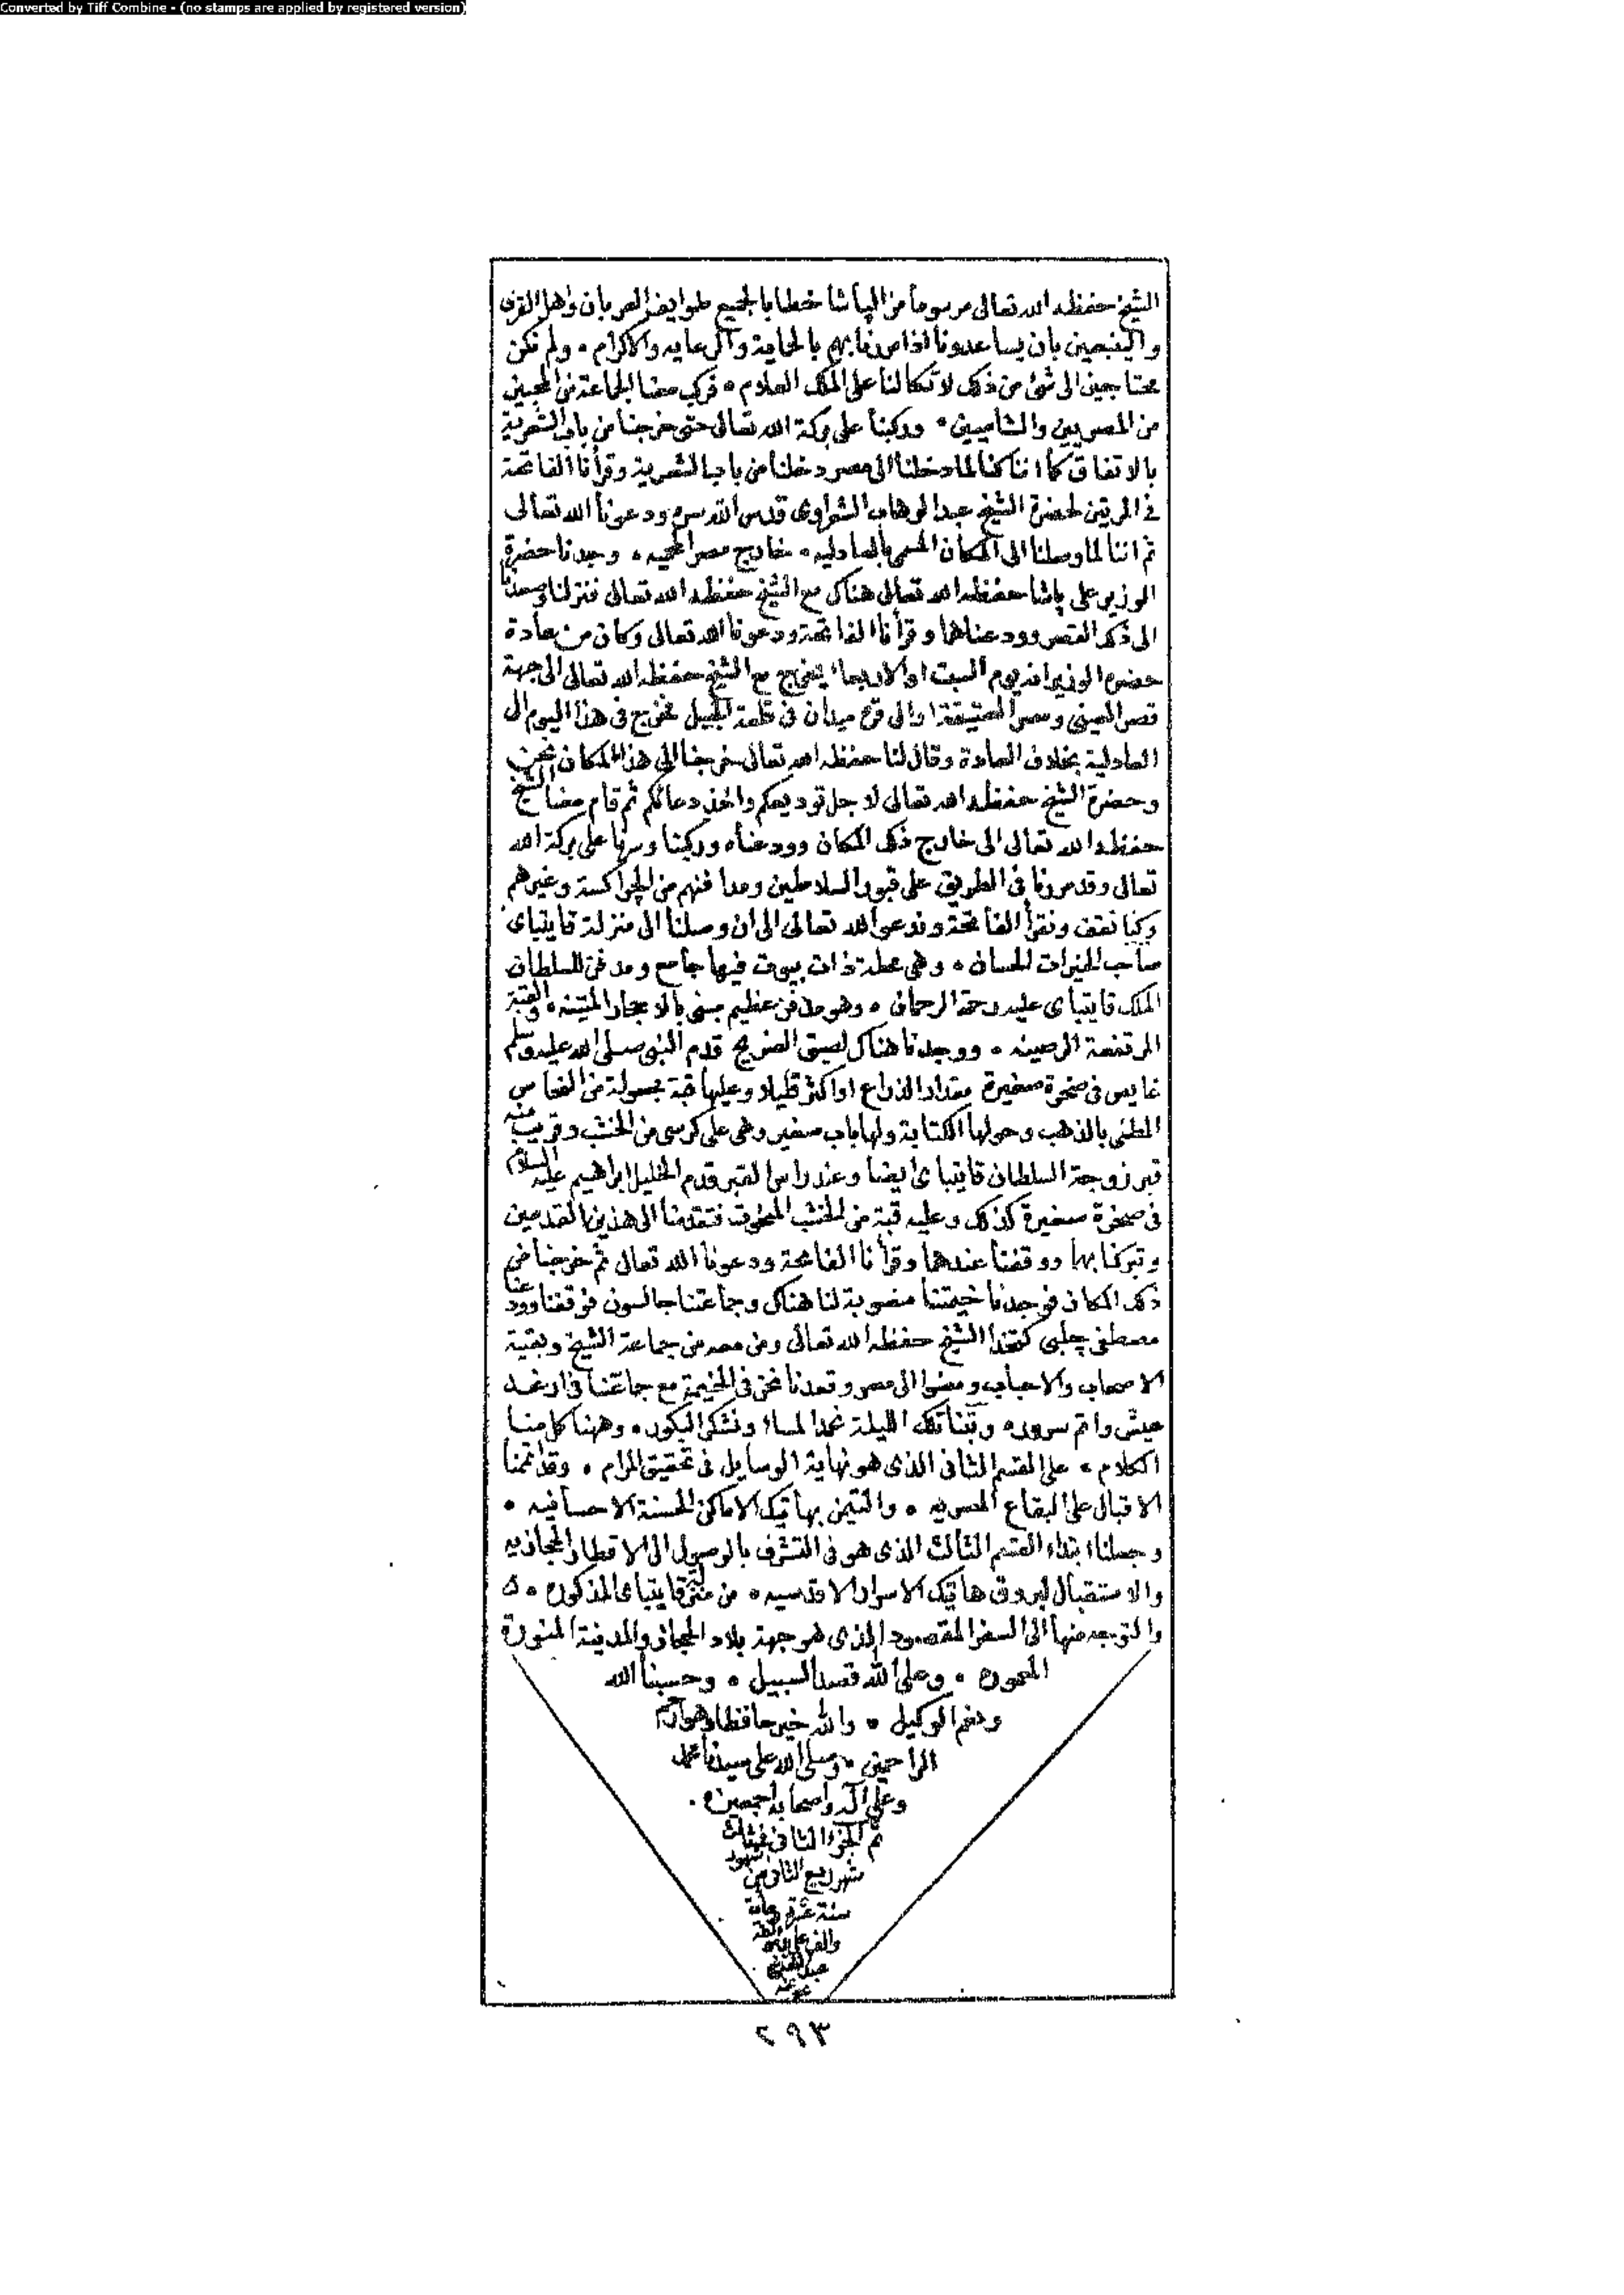 Converted by Tiff Combine - (no stamps are applied by registered version)
الشيخ حفظه الله تعالى مرسوما من الباشا خطابا لجميع طوايف العربان واهل القرى
والينبعين بان يساعدونا اذا مررنا بهم بالحماية والرعايه والاكرام ۰ ولم نكن
محتاجين الى شئ من ذلك لاتكالنا على الملك العلام ۰ فركب معنا الجماعة من المحبين
من المصريين والشاميين ۰ وركبنا على بركة الله تعالى حتى خرجنا من باب الشعرية
بالاتفاق كما اننا كنا لما دخلنا الى مصر دخلنا من باب الشعرية وقرأنا الفاتحة
في المرتين لحضرة الشيخ عبد الوهاب الشعراوى قدس الله سره ودعونا الله تعالى
ثم اننا لما وصلنا الى المكان المسمى بالعادليه ۰ خارج مصر المحميه ۰ وجدنا حضرة
الوزير على باشا حفظه الله تعالى هناك مع الشيخ حفظه الله تعالى فنزلنا وصعدنا
الى ذلك القصر وودعناهما وقرأنا الفاتحة ودعونا الله تعالى وكان من عادة
حضرة الوزير انه يوم السبت او الاربعاء يخرج مع الشيخ حفظه الله تعالى الى جهة
قصر العينى ومصر العتيقة او الى قره ميدان فى قلعة الجبل فخرج فى هذا اليوم الى
العادلية بخلاف العادة وقال لنا حفظه الله تعالى خرجنا الى هذا المكان نحن
وحضرة الشيخ حفظه الله تعالى لاجل توديعكم واخذ دعائكم ثم قام معنا الشيخ
حفظه الله تعالى الى خارج ذلك المكان وودعناه وركبنا وسرنا على بركة الله
تعالى وقد مررنا فى الطريق على قبور السلاطين ومدافنهم من الجراكسة وغيرهم
وكنا نقف ونقرأ الفاتحة وندعو الله تعالى الى ان وصلنا الى منزلة قايتباى
صاحب الخيرات الحسان ۰ وهى محلة ذات بيوت فيها جامع ومدفن للسلطان
الملك قايتباى عليه رحمة الرحمان ۰ وهو مدفن عظيم مبنى بالاحجار المتينه ۰ والقبة
المرتفعة الرصينه ۰ ووجدنا هناك لصيق الضريح قدم النبى صلى الله عليه وسلم
غايص فى صخرة صغيرة مقدار الذراع او اكثر قليلا وعليها قبة معمولة من النحاس
المطلى بالذهب وحولها الكتابة ولها باب صغير وهى على كرسى من الخشب وقريب منه
قبر زوجة السلطان قايتباى ايضا وعند راس القبر قدم الخليل ابراهيم عليه السلام
فى صخرة صغيرة كذلك وعليه قبة من الخشب المنحوت فتقدمنا الى هذين القدمين
وتبركنا بهما ووقفنا عندهما وقرأنا الفاتحة ودعونا الله تعالى ثم خرجنا من
ذلك المكان فوجدنا خيمتنا منصوبة لنا هناك وجماعتنا جالسون فوقفنا وودعنا
مصطفى چلبى كتخدا الشيخ حفظه الله تعالى ومن معه من جماعة الشيخ وبقية
الاصحاب والاحباب ومضوا الى مصر وقعدنا نحن فى الخيمة مع جماعتنا فى ارغد
عيش واتم سرور ۰ وبتنا تلك الليلة نحمد المساء ونشكر البكور ۰ وههنا كل منا
الكلام ۰ على القسم الثانى الذى هو نهاية الوسايل فى تحقيق المرام ۰ وقد اتممنا
الاقبال على البقاع المصريه ۰ والتيمن بهاتيك الاماكن الحسنة الاحسانيه ۰
وجعلنا ابتداء القسم الثالث الذى هو فى التشرف بالوصول الى الاقطار الحجازيه
والاستقبال لبروق هاتيك الاسرار الاقدسيه ۰ من منزلة قايتباى المذكوره ۰
والتوجه منها الى السفر المقصود الذى هو جهة بلاد الحجاز والمدينة المنورة
المعموره ۰ وعلى الله قصد السبيل ۰ وحسبنا الله
ونعم الوكيل ۰ والله خير حافظا وهو ارحم
الراحمين ۰ وصلى الله على سيدنا محمد
وعلى اله واصحابه اجمعين ۰
تم الجزء الثانى فى ثالث
شهر ربيع الثانى من شهور
سنة عشر ومائة
والف على يد
عبد الغنى
عفى عنه
٢٩٣